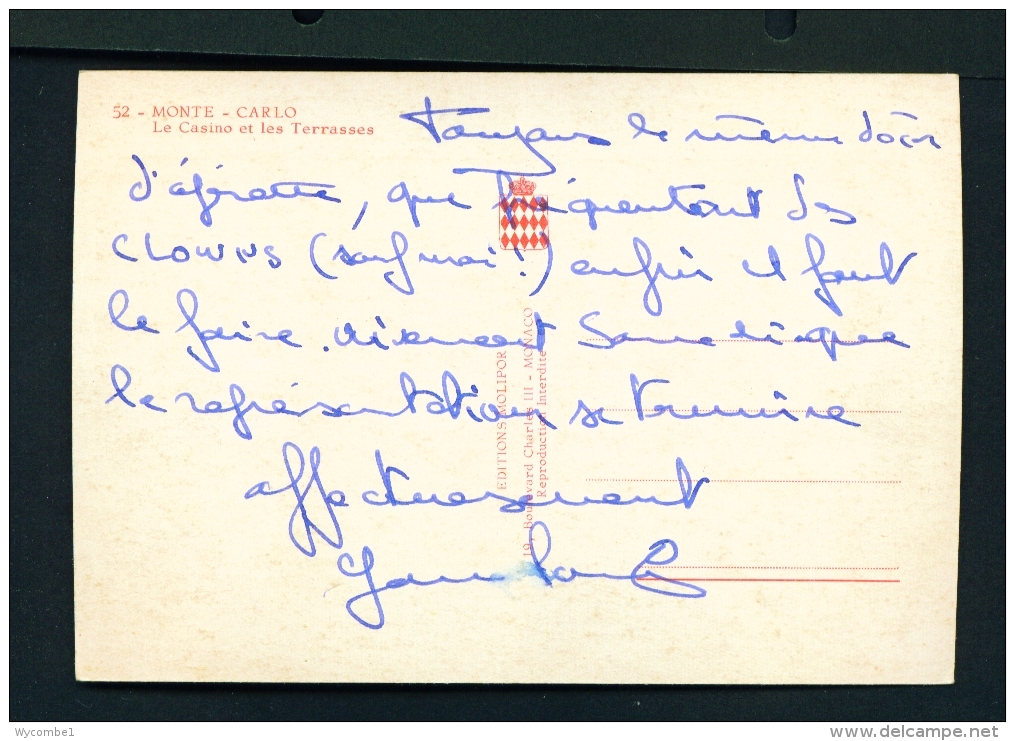 52 - MONTE - CARLO
Le Casino et les Terrasses
Toujours le même décor
d'opérette, que fréquentent des
CLOWNS (sauf moi!) enfin il faut
le faire. vivement Samedi que
la représentation se termine
affectueusement
EDITIONS MOLIPOR
19, Boulevard Charles III - MONACO
Reproduction Interdite
Wycombe1